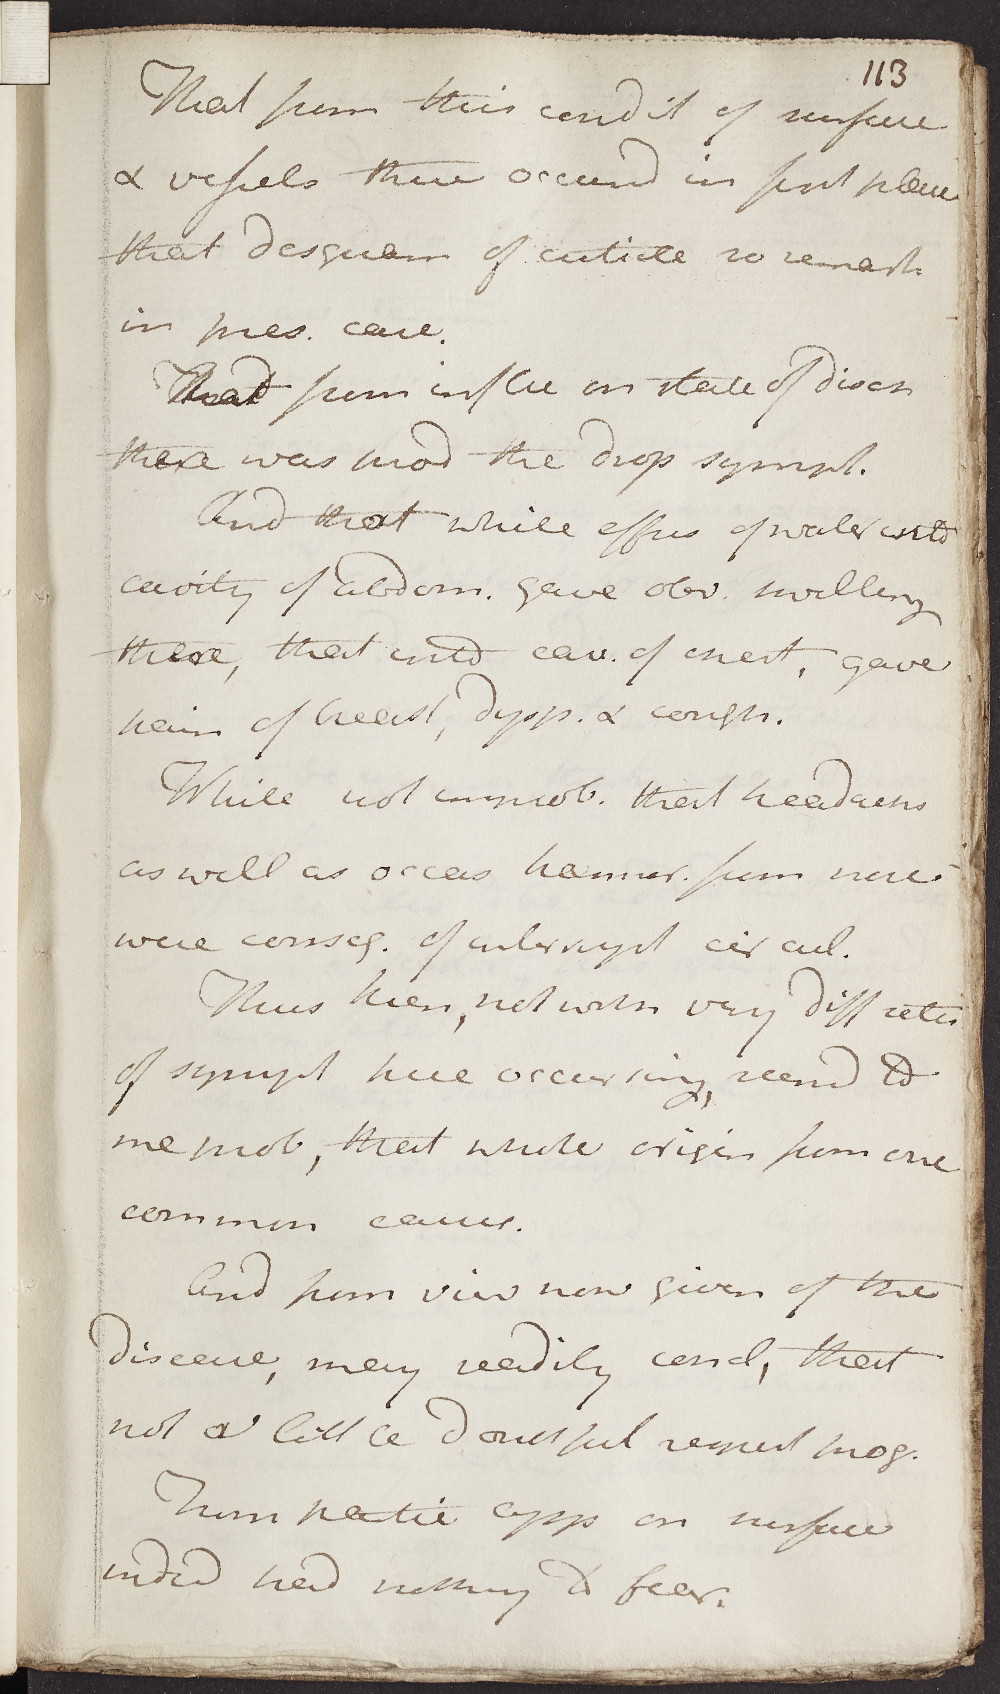 113
That from this condit of surface
& vessels there occurrd in first place
that desquam of cuticle so remark
in pres. case.
That from influ on state of disch
there was prod the drop sympt.
And that while effus of water into
cavity of abdom. gave obv. swelling
there, that into cav. of chest, gave
pain of breast, dysp. & cough.
While not improb. that headachs
as well as occas hemorr. from nose
were conseq. of interrupt circul.
Thus then, notwith very diff
of sympt here occurring, seemd to
me prob, that whole origin from one
common cause.
And from view now given of the
disease, may readily concl, that
not a little doubtful respect prog.
From patic app on surface
indeed had nothing to fear.